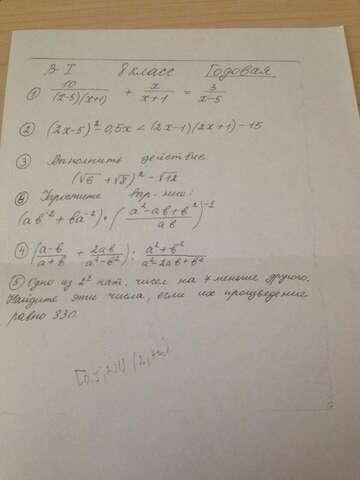 В I 8 класс Годовая
① 10/((x-5)(x+1)) + x/(x+1) = 3/(x-5)
② (2x-5)² - 0,5x < (2x-1)(2x+1) - 15
③ Выполнить действие
(√6 + √8)² - √12
⑥ Упростите выр-ние:
(ab⁻² + ba⁻²) · ((a²-ab+b²)/ab)⁻¹
④ ((a-b)/(a+b) + 2ab/(a²-b²)) : (a²+b²)/(a²-2ab+b²)
⑤ Одно из 2ˣ нат. чисел на 7 меньше другого.
Найдите эти числа, если их произведение
равно 330.